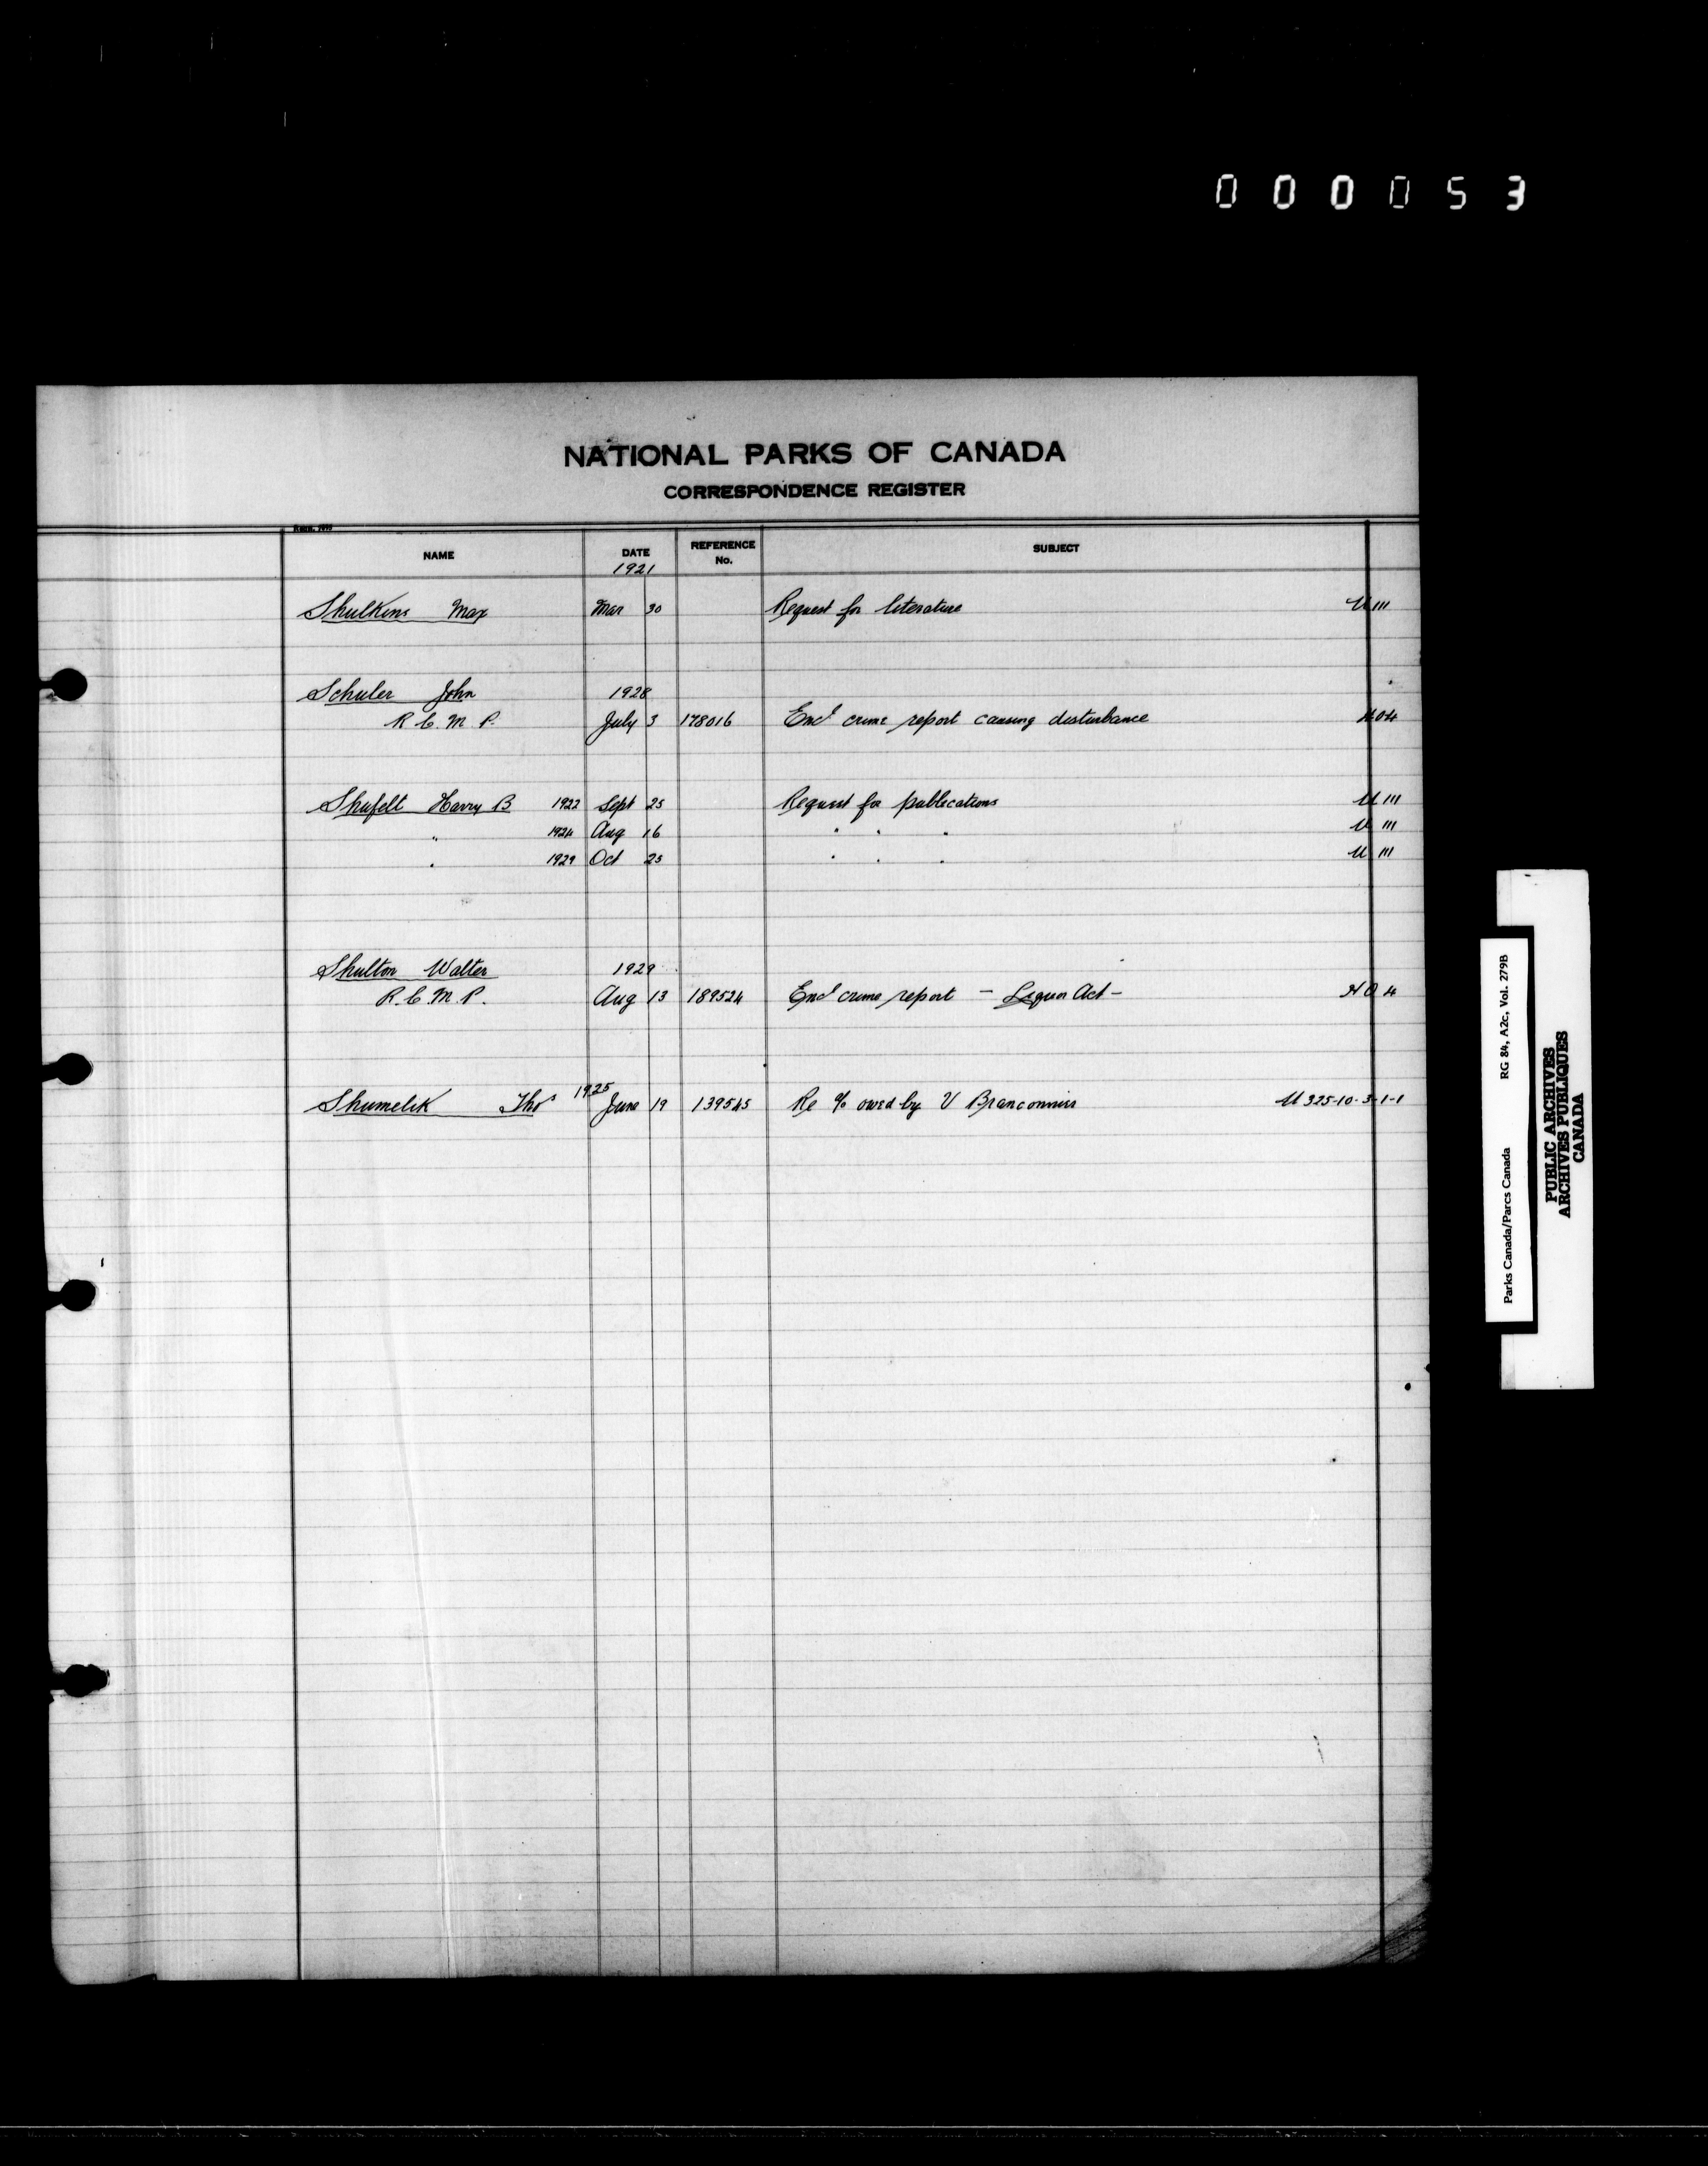 000053
NATIONAL PARKS OF CANADA
CORRESPONDENCE REGISTER
NAME DATE REFERENCE No. SUBJECT
1921
Shulkins Max Mar 30 Request for literature U 111
Schuler John 1928
R.C.M.P. July 3 178016 Encl crime report causing disturbance H04
Shufelt Harry B 1922 Sept 25 Request for publications U 111
" 1924 Aug 16 " " " U 111
" 1929 Oct 25 " " " U 111
Shulton Walter 1929
R.C.M.P. Aug 13 189524 Encl crime report - Liquor Act - H04
Shumelik Thos 1925 June 19 139545 Re % owed by V U 325-10-3-1-1
Parks Canada/Parcs Canada RG 84, A2c, Vol. 279B
PUBLIC ARCHIVES
ARCHIVES PUBLIQUES
CANADA